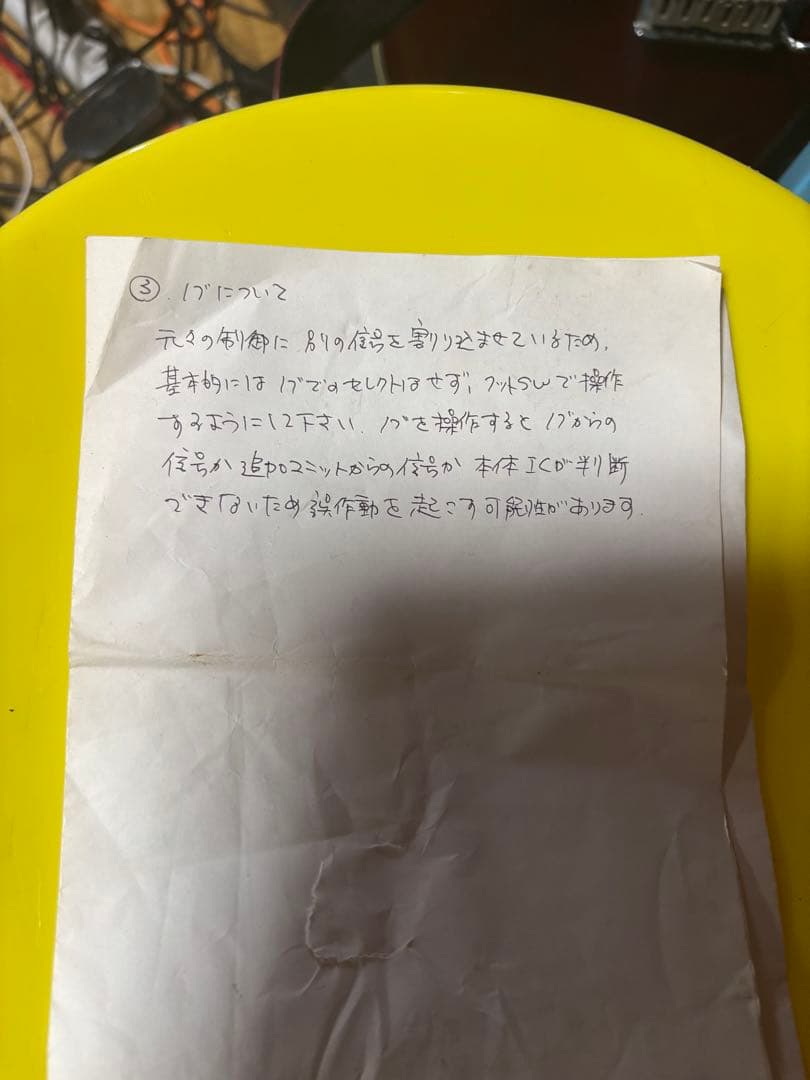 ③. ノブについて
元々の制御に別の信号を割り込ませているため、
基本的にはノブでのセレクトはせず、フットSWで操作
するようにして下さい. ノブを操作するとノブからの
信号か追加ユニットからの信号か本体ICが判断
できないため誤作動を起こす可能性があります.